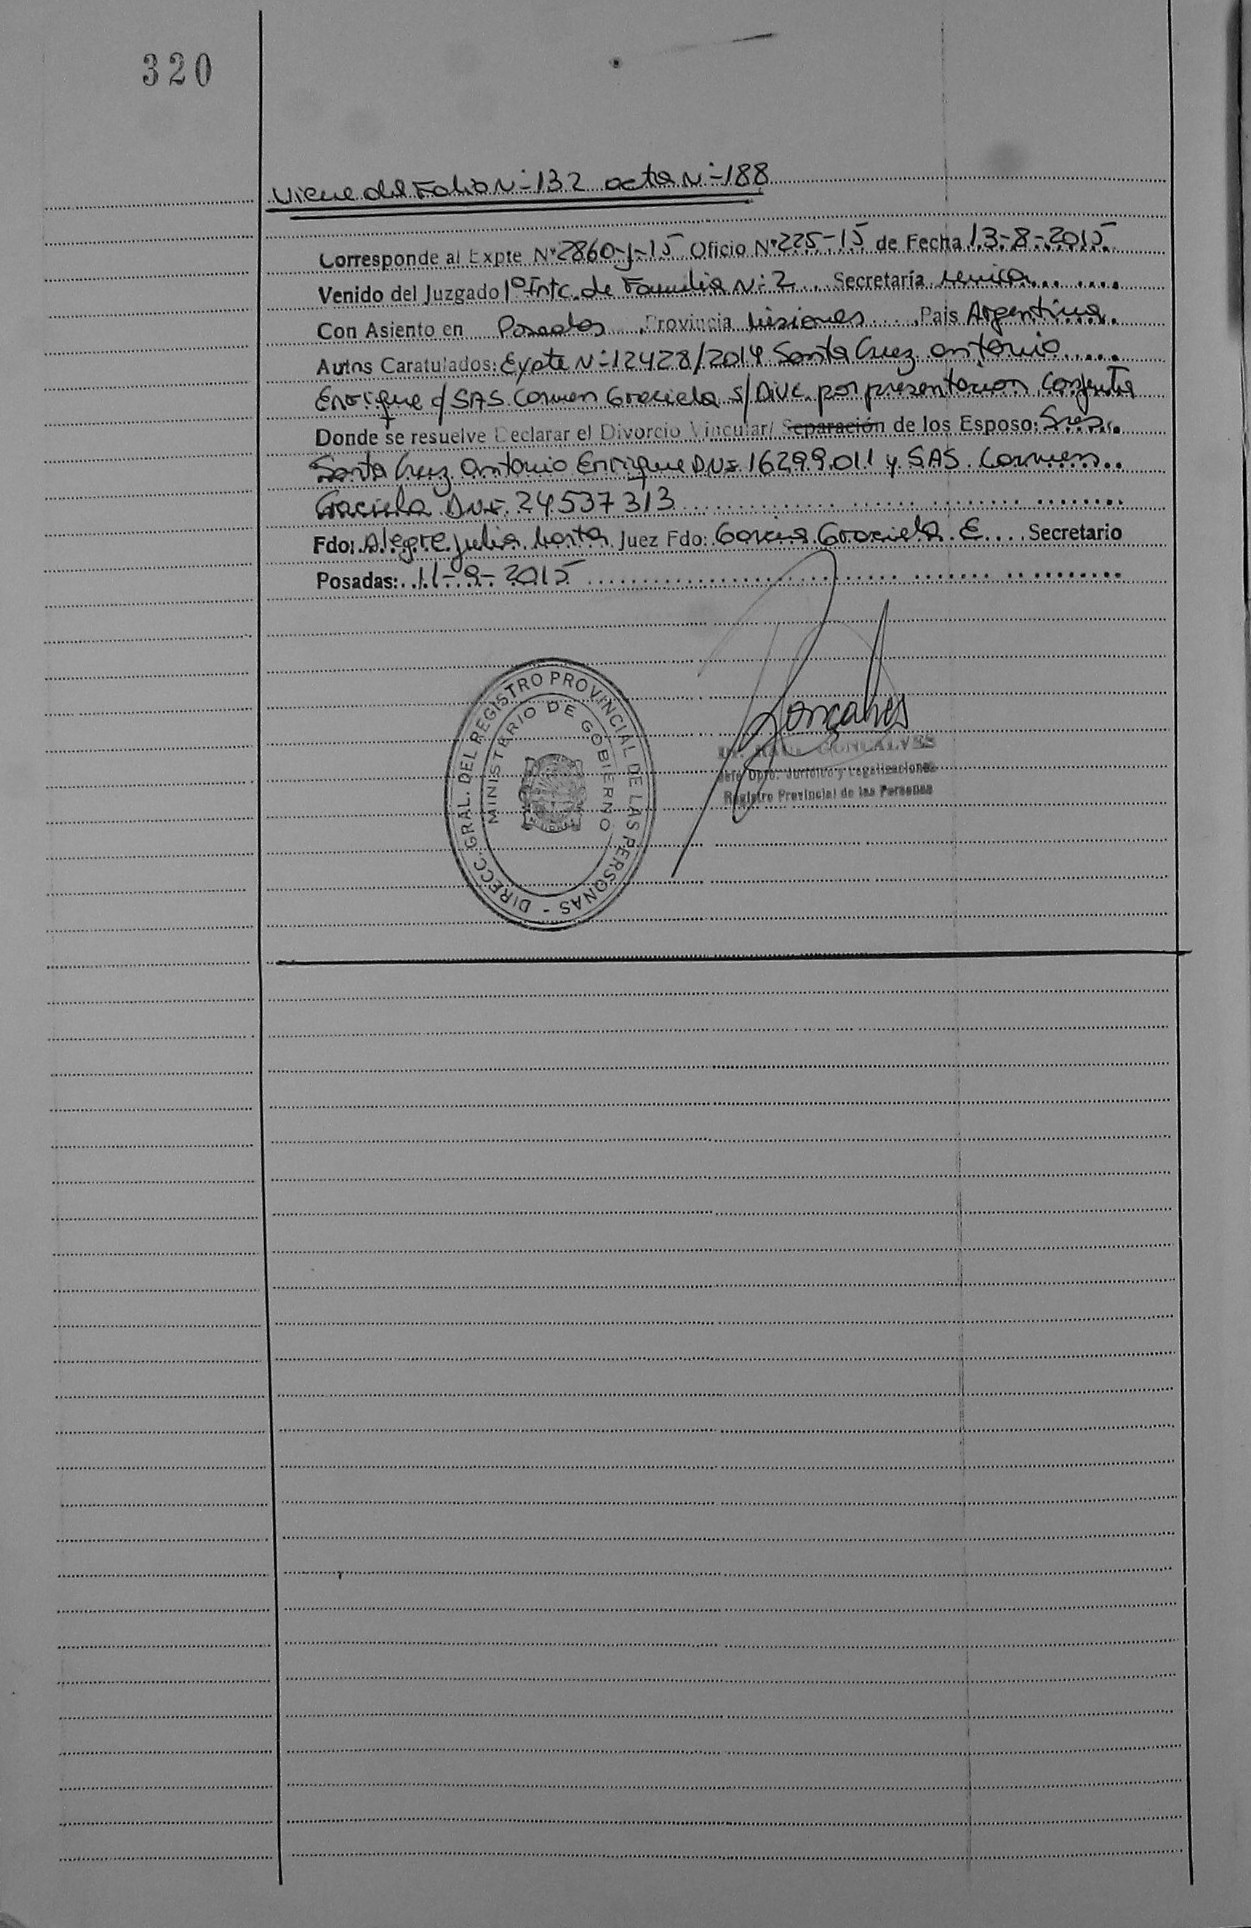 320
Viene del Folio N-132 acta N-188
Corresponde al Expte N° 2860-J-15 Oficio N° 225-15 de Fecha 13-8-2015
Venido del Juzgado 1° Intc. de Familia N-2 Secretaría unica
Con Asiento en Posadas Provincia Misiones Pais Argentina
Autos Caratulados: Expte N-12428/2014 Santa Cruz Antonio
Enrique c/ SAS Carmen Graciela s/ Divc. por presentacion Conjunta
Donde se resuelve Declarar el Divorcio Vincular/ Separación de los Esposo: Sres.
Santa Cruz Antonio Enrique DNI 16299.011 y SAS Carmen
Graciela DNI. 24537313
Fdo: Alegre Julia Marta Juez Fdo: Garcia Graciela E. Secretario
Posadas: 11-9-2015
DIRECC. GRAL. DEL REGISTRO PROVINCIAL DE LAS PERSONAS -
MINISTERIO DE GOBIERNO
Gonçalves
Dr. RAUL GONCALVES
Jefe Dpto. Jurídico y Legalizaciones
Registro Provincial de las Personas